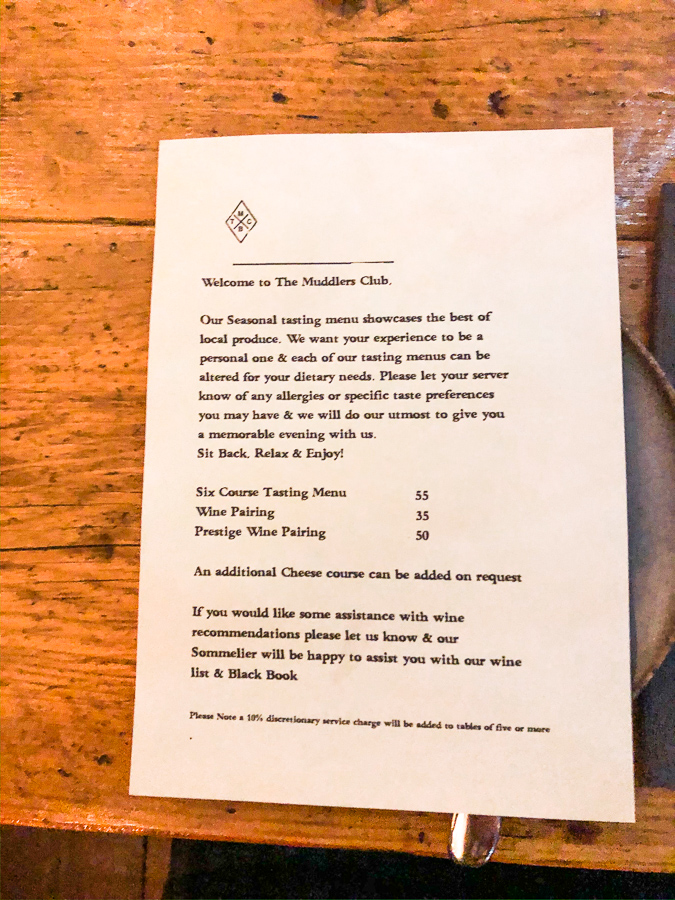 M
T C
B
Welcome to The Muddlers Club.
Our Seasonal tasting menu showcases the best of
local produce. We want your experience to be a
personal one & each of our tasting menus can be
altered for your dietary needs. Please let your server
know of any allergies or specific taste preferences
you may have & we will do our utmost to give you
a memorable evening with us.
Sit Back, Relax & Enjoy!
Six Course Tasting Menu 55
Wine Pairing 35
Prestige Wine Pairing 50
An additional Cheese course can be added on request
If you would like some assistance with wine
recommendations please let us know & our
Sommelier will be happy to assist you with our wine
list & Black Book
Please Note a 10% discretionary service charge will be added to tables of five or more
.